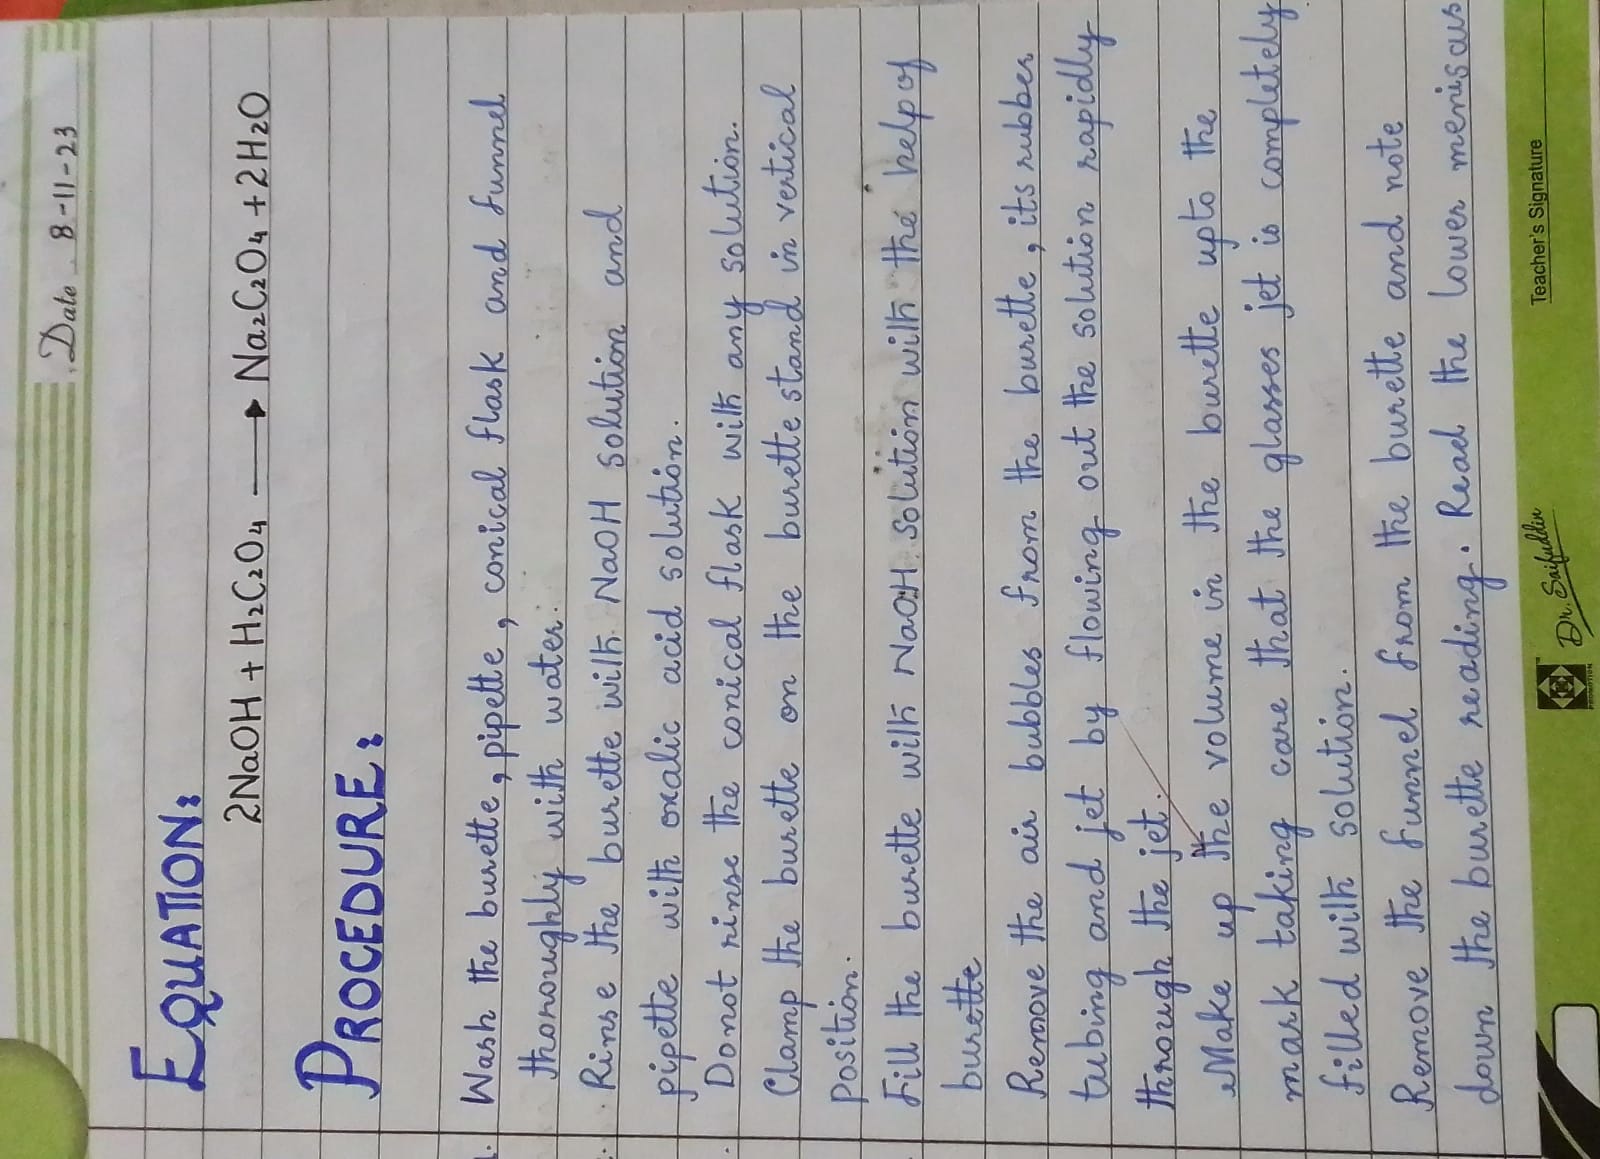 Date 8-11-23
EQUATION:
2NaOH + H₂C₂O₄ → Na₂C₂O₄ + 2H₂O
PROCEDURE:
Wash the burette, pipette, conical flask and funnel
thoroughly with water.
Rinse the burette with NaOH solution and
pipette with oxalic acid solution.
Donot rinse the conical flask with any solution.
Clamp the burette on the burette stand in vertical
position.
Fill the burette with NaOH solution with the help of
burette
Remove the air bubbles from the burette, its rubber
tubing and jet by flowing out the solution rapidly
through the jet.
Make up the volume in the burette upto the
mark taking care that the glasses jet is completely
filled with solution.
Remove the funnel from the burette and note
down the burette reading. Read the lower meniscus
PROMOTION
Dr. Saifuddin
Teacher's Signature